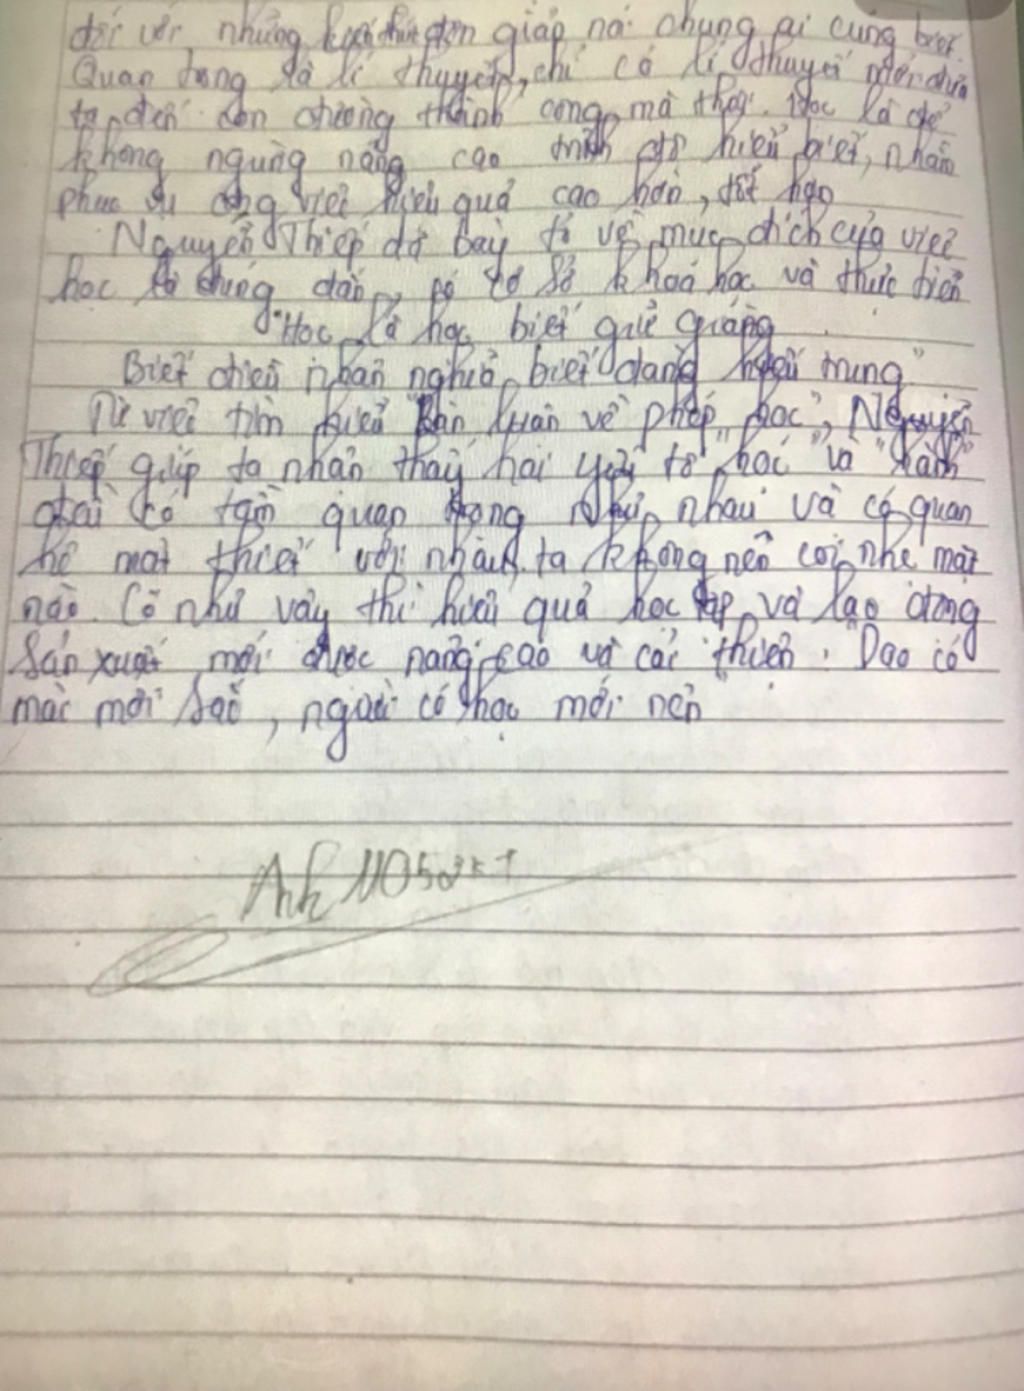 đối với những kiến thức đơn giản nói chung ai cũng biết.
Quan trọng là lí thuyết, chỉ có lí thuyết mới đưa
ta đến con đường thành công mà thôi. Học là để
không ngừng nâng cao trình độ hiểu biết, nhằm
phục vụ công việc hiệu quả cao hơn, tốt hơn
Nguyễn Thiếp đã bày tỏ về mục đích của việc
học là đúng đắn, có cơ sở khoa học và thực tiễn
"Học là học biết giữ giàng
Biết điều nhân nghĩa biết đàng hiếu trung"
Từ việc tìm hiểu "Bàn luận về phép học", Nguyễn
Thiếp giúp ta nhận thấy hai yếu tố "học" và "hành"
có tầm quan trọng như nhau và có quan
hệ mật thiết với nhau. ta không nên coi nhẹ mặt
nào. Có như vậy thì hiệu quả học tập và lao động
sản xuất mới được nâng cao và cải thiện. "Dao có
mài mới sắc, người có học mới nên
Anh